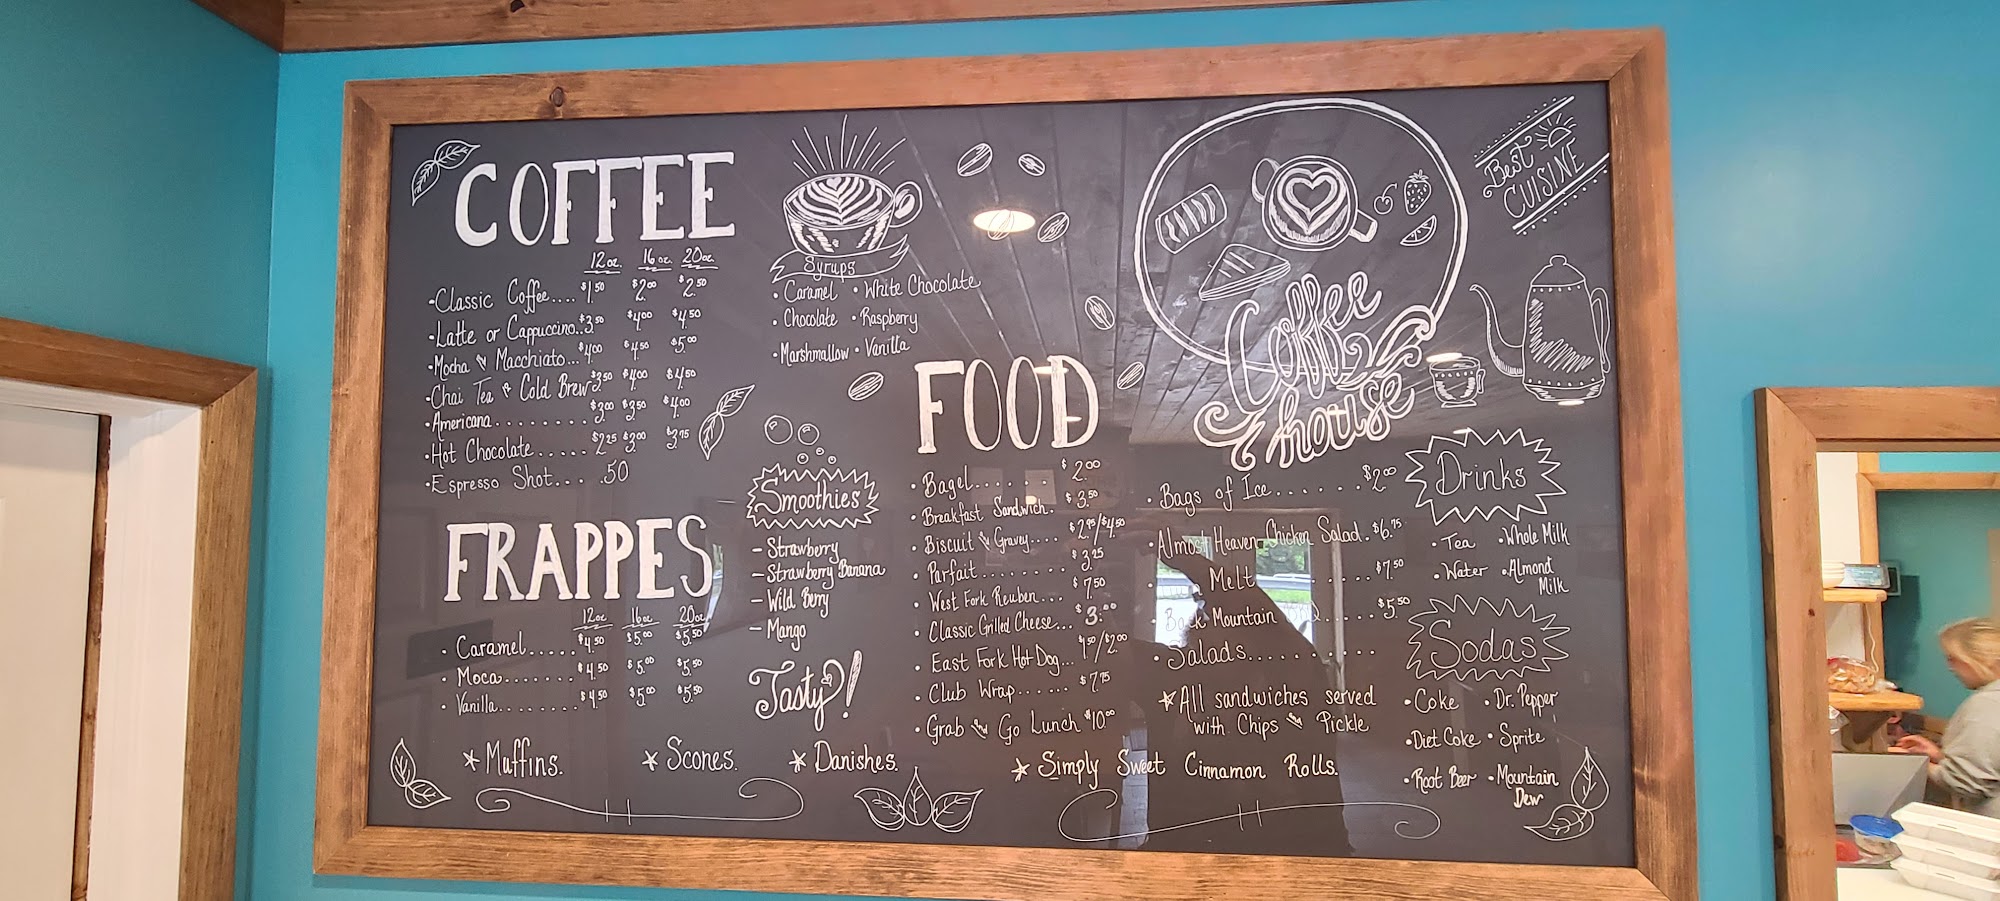 COFFEE
12oz. 16oz. 20oz.
•Classic Coffee.... $1.50 $2.00 $2.50
•Latte or Cappuccino..$3.50 $4.00 $4.50
•Mocha & Macchiato...$4.00 $4.50 $5.00
•Chai Tea & Cold Brew $3.50 $4.00 $4.50
•Americana........ $3.00 $3.50 $4.00
•Hot Chocolate..... $2.25 $3.00 $3.75
•Espresso Shot... .50
FRAPPES
12oz 16oz 20oz
• Caramel..... $4.50 $5.00 $5.50
• Moca....... $4.50 $5.00 $5.50
• Vanilla........ $4.50 $5.00 $5.50
Syrups
• Caramel • White Chocolate
• Chocolate • Raspberry
• Marshmallow • Vanilla
Smoothies
- Strawberry
- Strawberry Banana
- Wild Berry
- Mango
Tasty!
FOOD
• Bagel....... $2.00
• Breakfast Sandwich. $3.50
• Biscuit & Gravey.... $2.95/$4.50
• Parfait......... $3.25
• West Fork Reuben... $7.50
• Classic Grilled Cheese... $3.00
• East Fork Hot Dog... $1.50/$2.00
• Club Wrap...... $7.75
• Grab & Go Lunch $10.00
Coffee
house
Best
CUISINE
• Bags of Ice....... $2.00
• Almost Heaven Chicken Salad. $6.75
• Melt ........ $7.50
• Mountain ..... $5.50
• Salads..........
*All sandwiches served
with Chips & Pickle
Drinks
• Tea • Whole Milk
• Water • Almond
Milk
Sodas
• Coke • Dr. Pepper
• Diet Coke • Sprite
• Root Beer • Mountain
Dew
* Muffins. * Scones. * Danishes. * Simply Sweet Cinnamon Rolls.